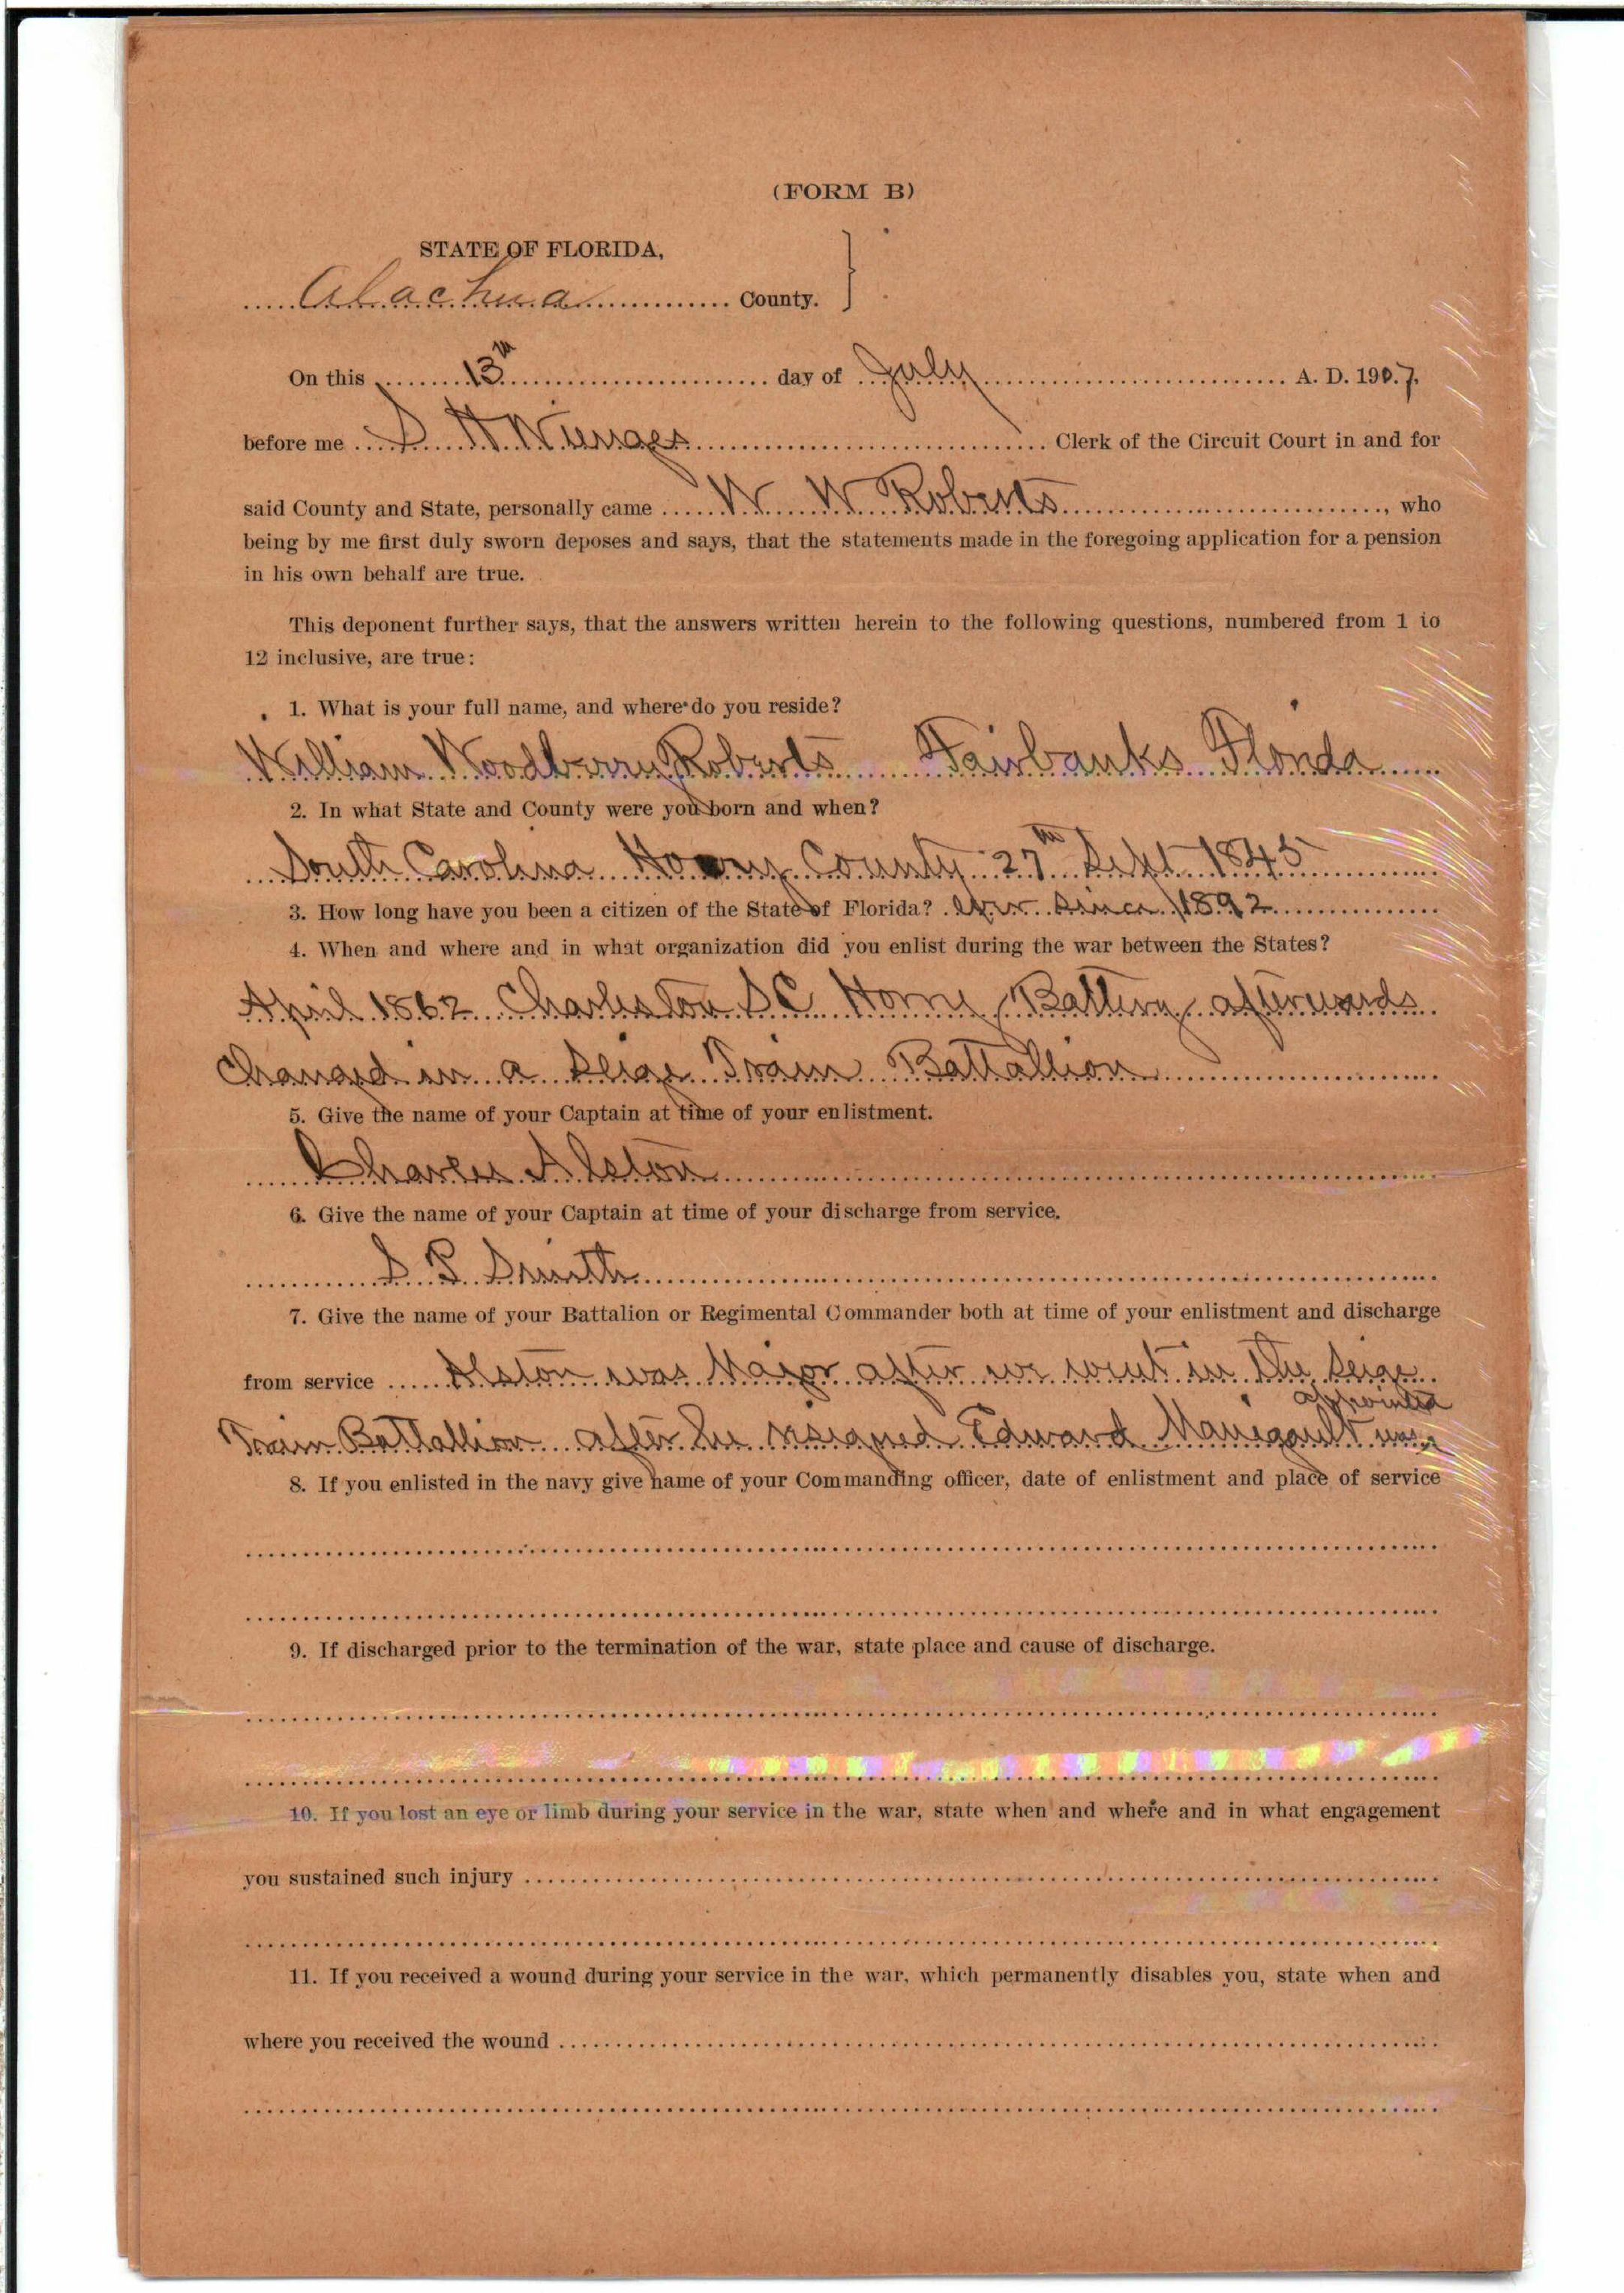 (FORM B)
STATE OF FLORIDA,
Alachua County.
On this 13th day of July A. D. 1907.
before me S H Wienges Clerk of the Circuit Court in and for
said County and State, personally came W. W. Roberts, who
being by me first duly sworn deposes and says, that the statements made in the foregoing application for a pension
in his own behalf are true.
This deponent further says, that the answers written herein to the following questions, numbered from 1 to
12 inclusive, are true:
1. What is your full name, and where do you reside?
William Woodberry Roberts Fairbanks Florida
2. In what State and County were you born and when?
South Carolina Horry County 27th Sept 1845
3. How long have you been a citizen of the State of Florida? Ever since 1892
4. When and where and in what organization did you enlist during the war between the States?
April 1862 Charleston S C Horry Battery afterwards
changed in a Seige Train Battallion
5. Give the name of your Captain at time of your enlistment.
Charles Alston
6. Give the name of your Captain at time of your discharge from service.
S. P. Smith
7. Give the name of your Battalion or Regimental Commander both at time of your enlistment and discharge
from service Alston was Major after we went in the Seige
Train Battallion after he resigned Edward Manigault was appointed
8. If you enlisted in the navy give name of your Commanding officer, date of enlistment and place of service
9. If discharged prior to the termination of the war, state place and cause of discharge.
10. If you lost an eye or limb during your service in the war, state when and where and in what engagement
you sustained such injury
11. If you received a wound during your service in the war, which permanently disables you, state when and
where you received the wound